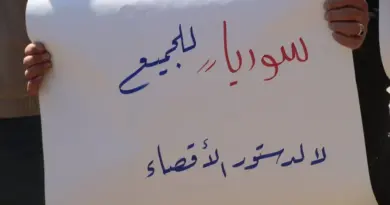 سوريا للجميع
لا لدستور الأقصاء